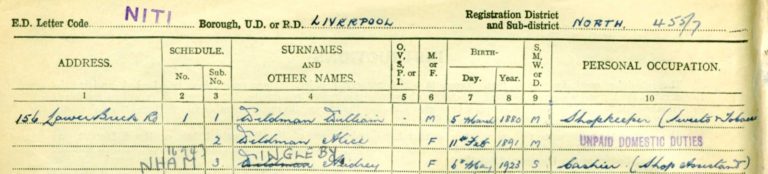 E.D. Letter Code NITI Borough, U.D. or R.D. LIVERPOOL Registration District and Sub-district NORTH. 455/7
ADDRESS. SCHEDULE. No. Sub. No. SURNAMES AND OTHER NAMES. O, V, S, P, or I. M. or F. BIRTH- Day. Year. S, M, W, or D. PERSONAL OCCUPATION.
1 2 3 4 5 6 7 8 9 10
156 Lower Breck Rd 1 1 Wildman William M 5 March 1880 M Shopkeeper (Sweets & Tobacco
2 Wildman Alice F 11th Feb 1891 M UNPAID DOMESTIC DUTIES
NHAM 3 DINGLEBY Wildman Audrey F 6th May 1923 S Cashier. (Shop Assistant)